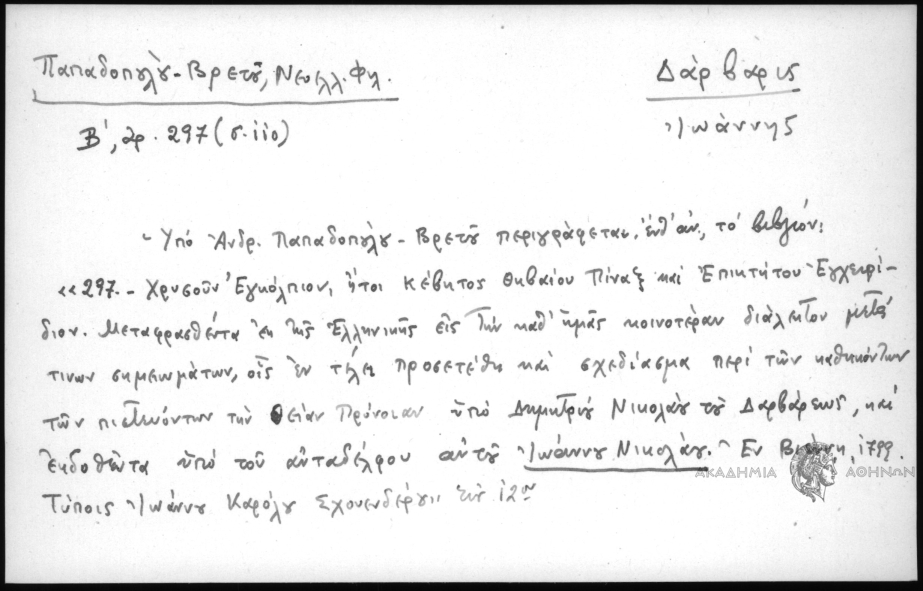 Παπαδοπούλου-Βρετοῦ, Νεοελλ. Φιλ.
Δάρβαρις
Β', ἀρ. 297 (σ. 110)
Ἰωάννης
Ὑπό Ἀνδρ. Παπαδοπούλου-Βρετοῦ περιγράφεται, ἔνθ' ἀν., τό βιβλίον:
«297.- Χρυσοῦν Ἐγκόλπιον, ἤτοι Κέβητος Θηβαίου Πίναξ καί Ἐπικτήτου Ἐγχειρί-
διον. Μεταφρασθέντα ἐκ τῆς Ἑλληνικῆς εἰς τήν καθ' ἡμᾶς κοινοτέραν διάλεκτον μετά
τινων σημειωμάτων, οἷς ἐν τέλει προσετέθη καί σχεδίασμα περί τῶν καθηκόντων
τῶν πιστευόντων τήν Θείαν Πρόνοιαν ὑπό Δημητρίου Νικολάου τοῦ Δαρβάρεως, καί
ἐκδοθέντα ὑπό τοῦ αὐταδέλφου αὐτοῦ Ἰωάννου Νικολάου. Ἐν Βιέννῃ, 1799.
ΑΚΑΔΗΜΙΑ ΑΘΗΝΩΝ
Τύποις Ἰωάννου Καρόλου Σχουενδέρου εἰς 12ον